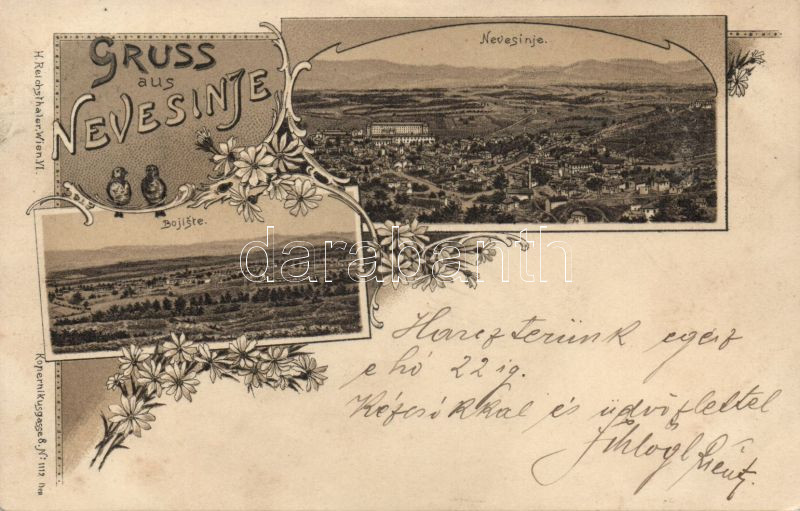 GRUSS
aus
NEVESINJE
Nevesinje.
Bojište.
H. Reichsthaler, Wien VI.
Kopernikusgasse 8. N: 1112
darabanth
Harcz terünk egész
e hó 22 ig.
Kézcsókkal és üdvözlettel